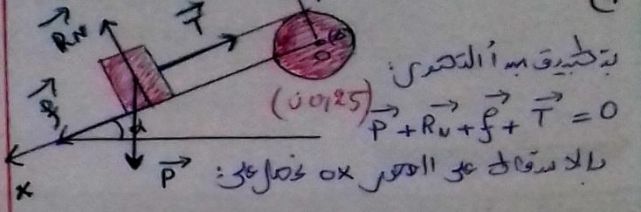 R_N
T
f
α
P
x
O
(0,25 ن)
بتطبيق مبدأ القصور:
P + R_N + f + T = 0
بالاسقاط على المحور ox نحصل على: